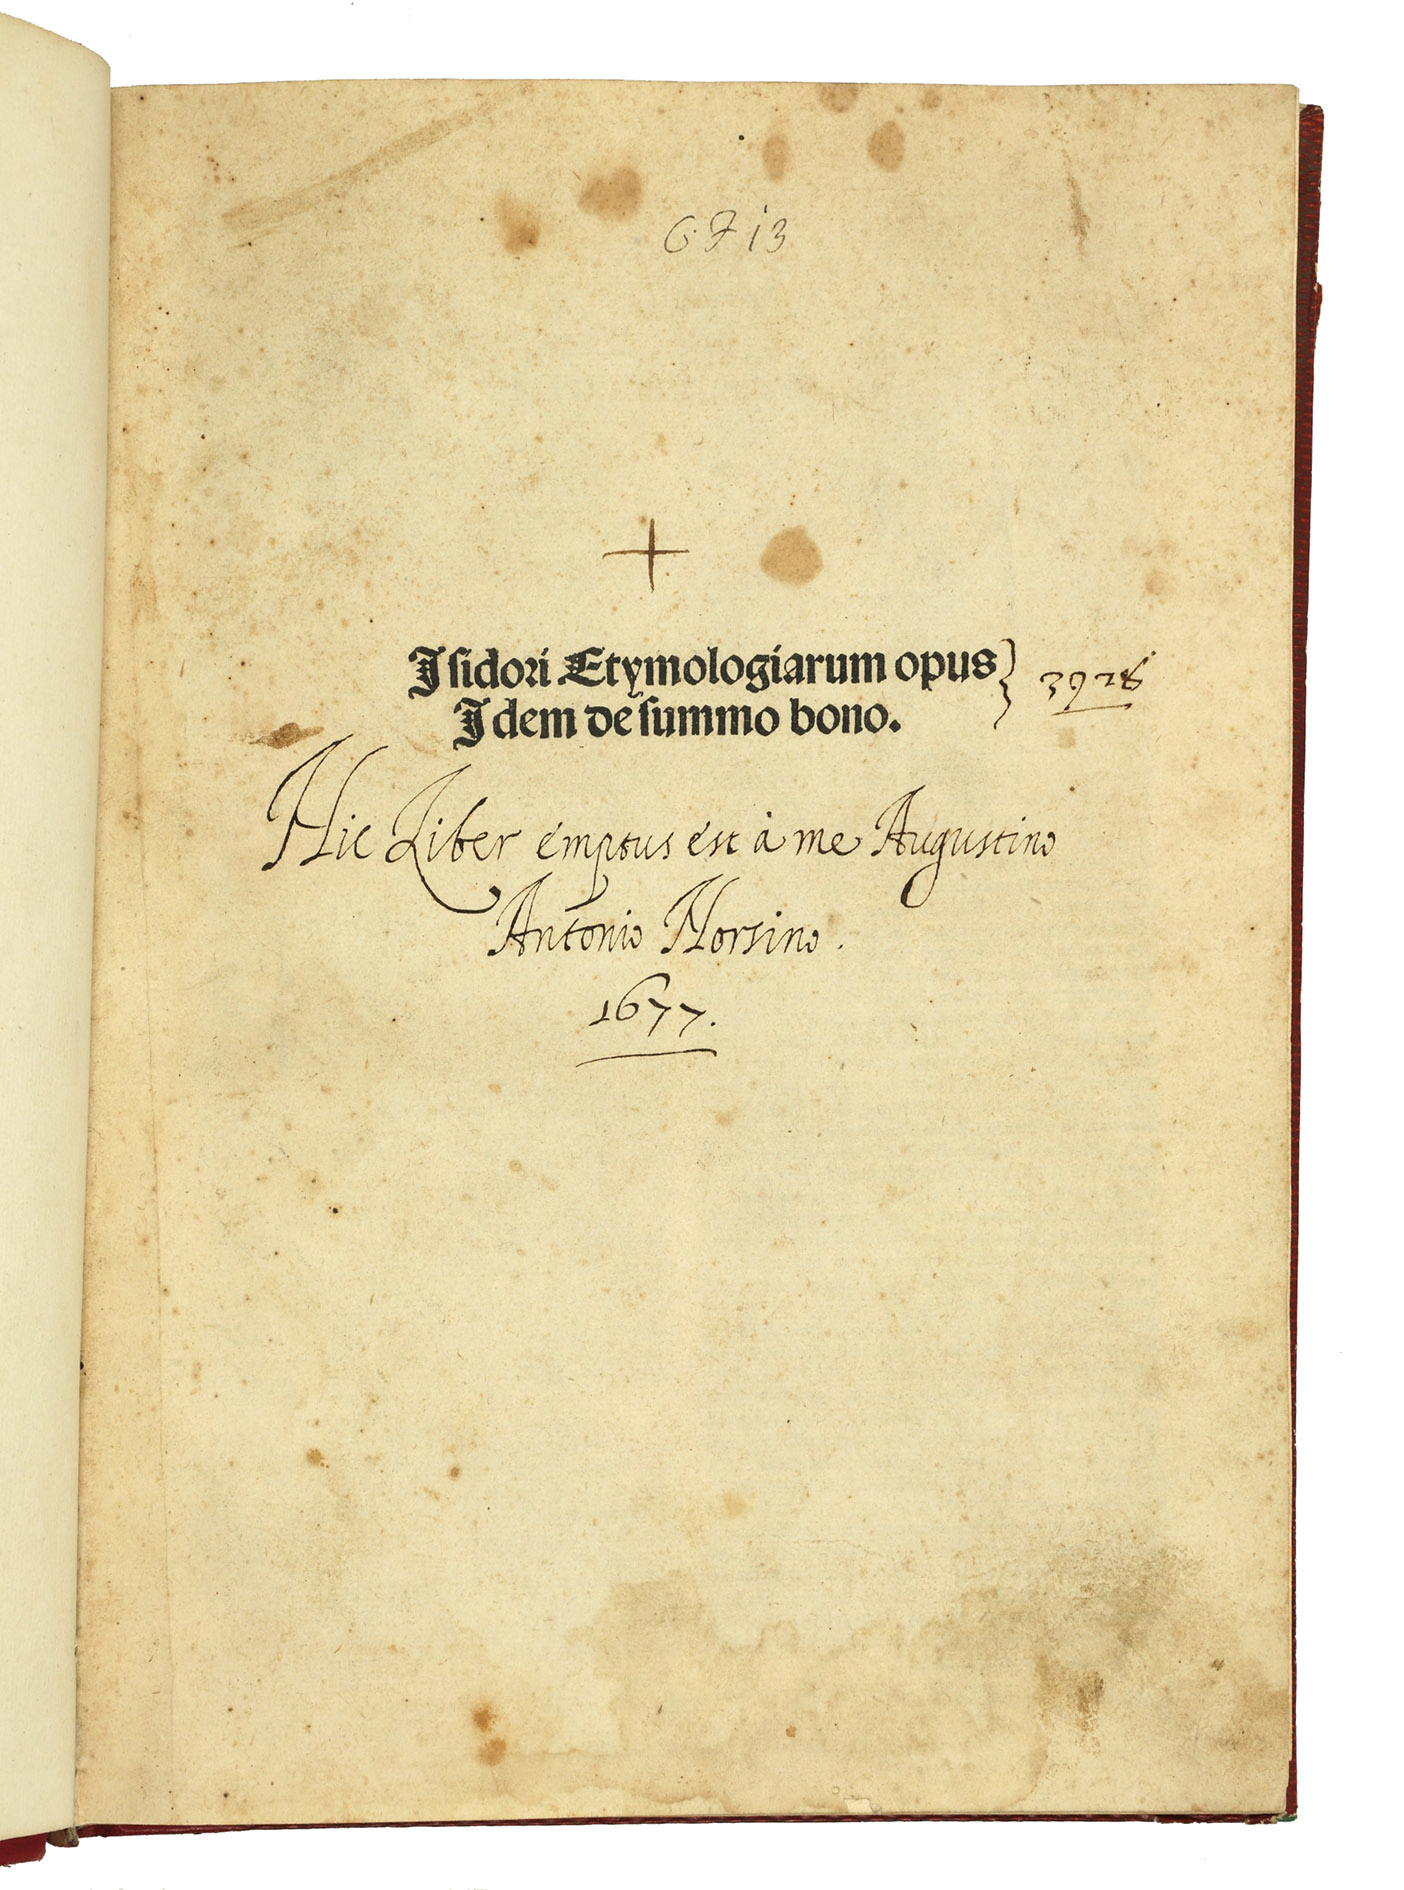 6713
Isidori Etymologiarum opus
3928
Idem de summo bono.
Hic Liber emptus est à me Augustino
Antonio Norsino.
1677.